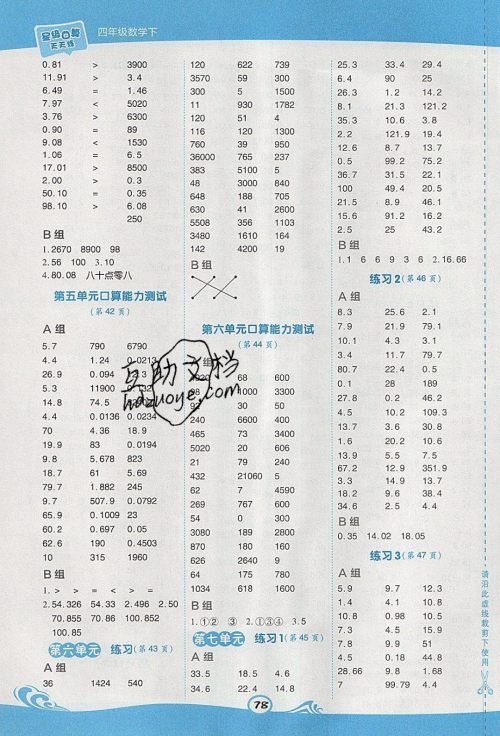 星级口算
天天练
四年级数学下
0.81 > 3900
11.91 > 3.4
6.49 = 1.46
7.97 < 5020
3.76 > 6300
0.90 = 89
9.08 < 1530
1.06 = 6.5
17.01 > 8500
2.00 > 0.3
50.10 = 0.35
98.10 > 6.08
250
B 组
1.2670 8900 98
2.56 100 3.10
4.80.08 八十点零八
第五单元口算能力测试
(第 42 页)
A 组
5.7 790 6790
4.4 1.24 0.0213
26.9 0.094 2.3
5.3 11900 132
14.8 74.5
4.4 0.0136 0.0234
70 4.36 18.9
19.9 83 0.0194
9.8 5.678 823
18.7 61 5.69
79.7 1.882 245
9.7 507.9 0.0792
65.9 0.1009 23
60.2 0.697 0.05
62.6 190 0.4503
10 315 1960
B 组
1. > > = < > =
2.54.326 54.33 2.496 2.50
70.855 70.86 100.852
100.85
第六单元 练习(第 43 页)
A 组
36 1424 540
120 622 739
3570 59 300
300 5 1500
11 930 1782
120 51 4
116 120 1300
760 39 950
36000 765 237
383 5100 5
48 3000 840
648 188 705
630 41 2600
5508 356 1103
3480 1610 164
142 4200 19
B 组
第六单元口算能力测试
(第 44 页)
组
020 68 600
98 1000 3300
92 30 50
240 6600 400
465 73 3400
5020 20 606
21 79 240
432 21060 5
62 7 4590
269 767 600
54 0 300
3080 189 2800
870 180 160
626 2640 9
64 175 780
1034 618 1600
B 组
1.①② ③ 2.①③④ 3.5
第七单元 练习 1(第 45 页)
A 组
33.5 18.5 4.6
34.6 22.4 14.8
25.3 33.4 29.4
6.4 90 25
26.3 1.2 14.2
8.1 21.3 121.2
35.3 10.6 3.8
2.2 121.9 19.4
12.6 8.7 13.7
0.5 99.2 75.2
36.7 31.5 22.1
100 49.4 20.5
21.5 8.9 46.1
15.6 91.2 16.2
2.5 25 43.2
B 组
1.1 6 6 9 3 6 2.16.66
练习 2(第 46 页)
A 组
8.3 25.6 2.1
7.9 21.9 79.1
10.1 4.3 3.1
3.4 11.7 79.7
80.7 22.4 0.5
0.1 28 189
27.8 0.2 46.2
4.5 10.2 109.3
13.7 3.6 30.8
10.6 1.2 20.6
13.9 5.5 7.5
67.2 12.9 351.9
3.3 14.9 13.7
18.2 9.6 38.4
34.6 2.5 4.4
B 组
0.35 14.02 18.05
练习 3(第 47 页)
A 组
5.9 9.7 12.3
1.4 4.1 10.8
10.8 0.98 10.5
7.3 4.5 15.9
7.8 9.9 51
4.5 0.18 44.8
28.66 9.8 1.68
7 99.79 4.4
请沿此虚线裁剪下使用
互助文档
hdzuoye.com
78